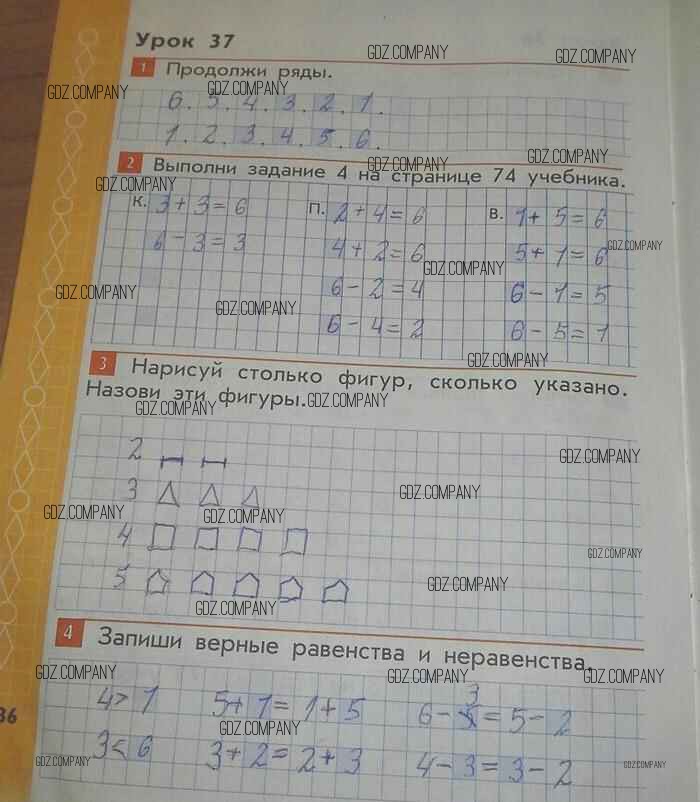 Урок 37
GDZ.COMPANY GDZ.COMPANY
1 Продолжи ряды.
GDZ.COMPANY GDZ.COMPANY
6. 5. 4. 3. 2. 1.
1. 2. 3. 4. 5. 6.
GDZ.COMPANY GDZ.COMPANY
2 Выполни задание 4 на странице 74 учебника.
GDZ.COMPANY
К. 3 + 3 = 6 П. 2 + 4 = 6 В. 1 + 5 = 6
6 - 3 = 3 4 + 2 = 6 5 + 1 = 6 GDZ.COMPANY
GDZ.COMPANY
GDZ.COMPANY 6 - 2 = 4 6 - 1 = 5
GDZ.COMPANY
6 - 4 = 2 6 - 5 = 1
GDZ.COMPANY
3 Нарисуй столько фигур, сколько указано.
Назови эти фигуры. GDZ.COMPANY
GDZ.COMPANY
2 GDZ.COMPANY
3 GDZ.COMPANY
GDZ.COMPANY GDZ.COMPANY
4 GDZ.COMPANY
5 GDZ.COMPANY
GDZ.COMPANY
4 Запиши верные равенства и неравенства.
GDZ.COMPANY GDZ.COMPANY GDZ.COMPANY
36 4 > 1 5 + 1 = 1 + 5 6 - 3 = 5 - 2
GDZ.COMPANY
3 < 6 3 + 2 = 2 + 3 4 - 3 = 3 - 2
GDZ.COMPANY GDZ.COMPANY